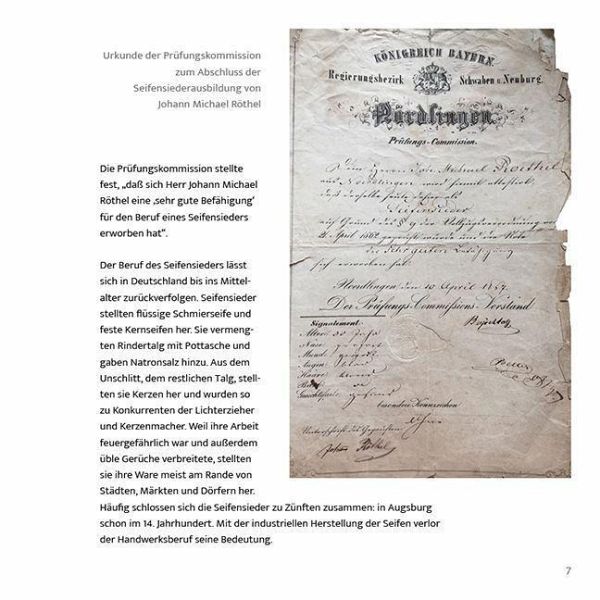 Urkunde der Prüfungskommission
zum Abschluss der
Seifensiederausbildung von
Johann Michael Röthel
Die Prüfungskommission stellte
fest, „daß sich Herr Johann Michael
Röthel eine ‚sehr gute Befähigung‘
für den Beruf eines Seifensieders
erworben hat“.
Der Beruf des Seifensieders lässt
sich in Deutschland bis ins Mittel-
alter zurückverfolgen. Seifensieder
stellten flüssige Schmierseife und
feste Kernseifen her. Sie vermeng-
ten Rindertalg mit Pottasche und
gaben Natronsalz hinzu. Aus dem
Unschlitt, dem restlichen Talg, stell-
ten sie Kerzen her und wurden so
zu Konkurrenten der Lichterzieher
und Kerzenmacher. Weil ihre Arbeit
feuergefährlich war und außerdem
üble Gerüche verbreitete, stellten
sie ihre Ware meist am Rande von
Städten, Märkten und Dörfern her.
Häufig schlossen sich die Seifensieder zu Zünften zusammen: in Augsburg
schon im 14. Jahrhundert. Mit der industriellen Herstellung der Seifen verlor
der Handwerksberuf seine Bedeutung.
KÖNIGREICH BAYERN.
Regierungsbezirk Schwaben u. Neuburg.
Nördlingen.
Prüfungs-Commission.
Herrn Joh. Michael Roethel
aus Noerdlingen wird hiemit
Seifensieder
auf Grund des § 9 der
April 1862
sich erworben habe.
Noerdlingen den 10 April 18
Der Prüfungs-Commissions-Vorstand
Signalement.
Alter
Nase
Mund
Augen
Haare
Bart
Gesichtsfarbe
besondere Kennzeichen
Unterschrift des Geprüften
Johann Röthel
7